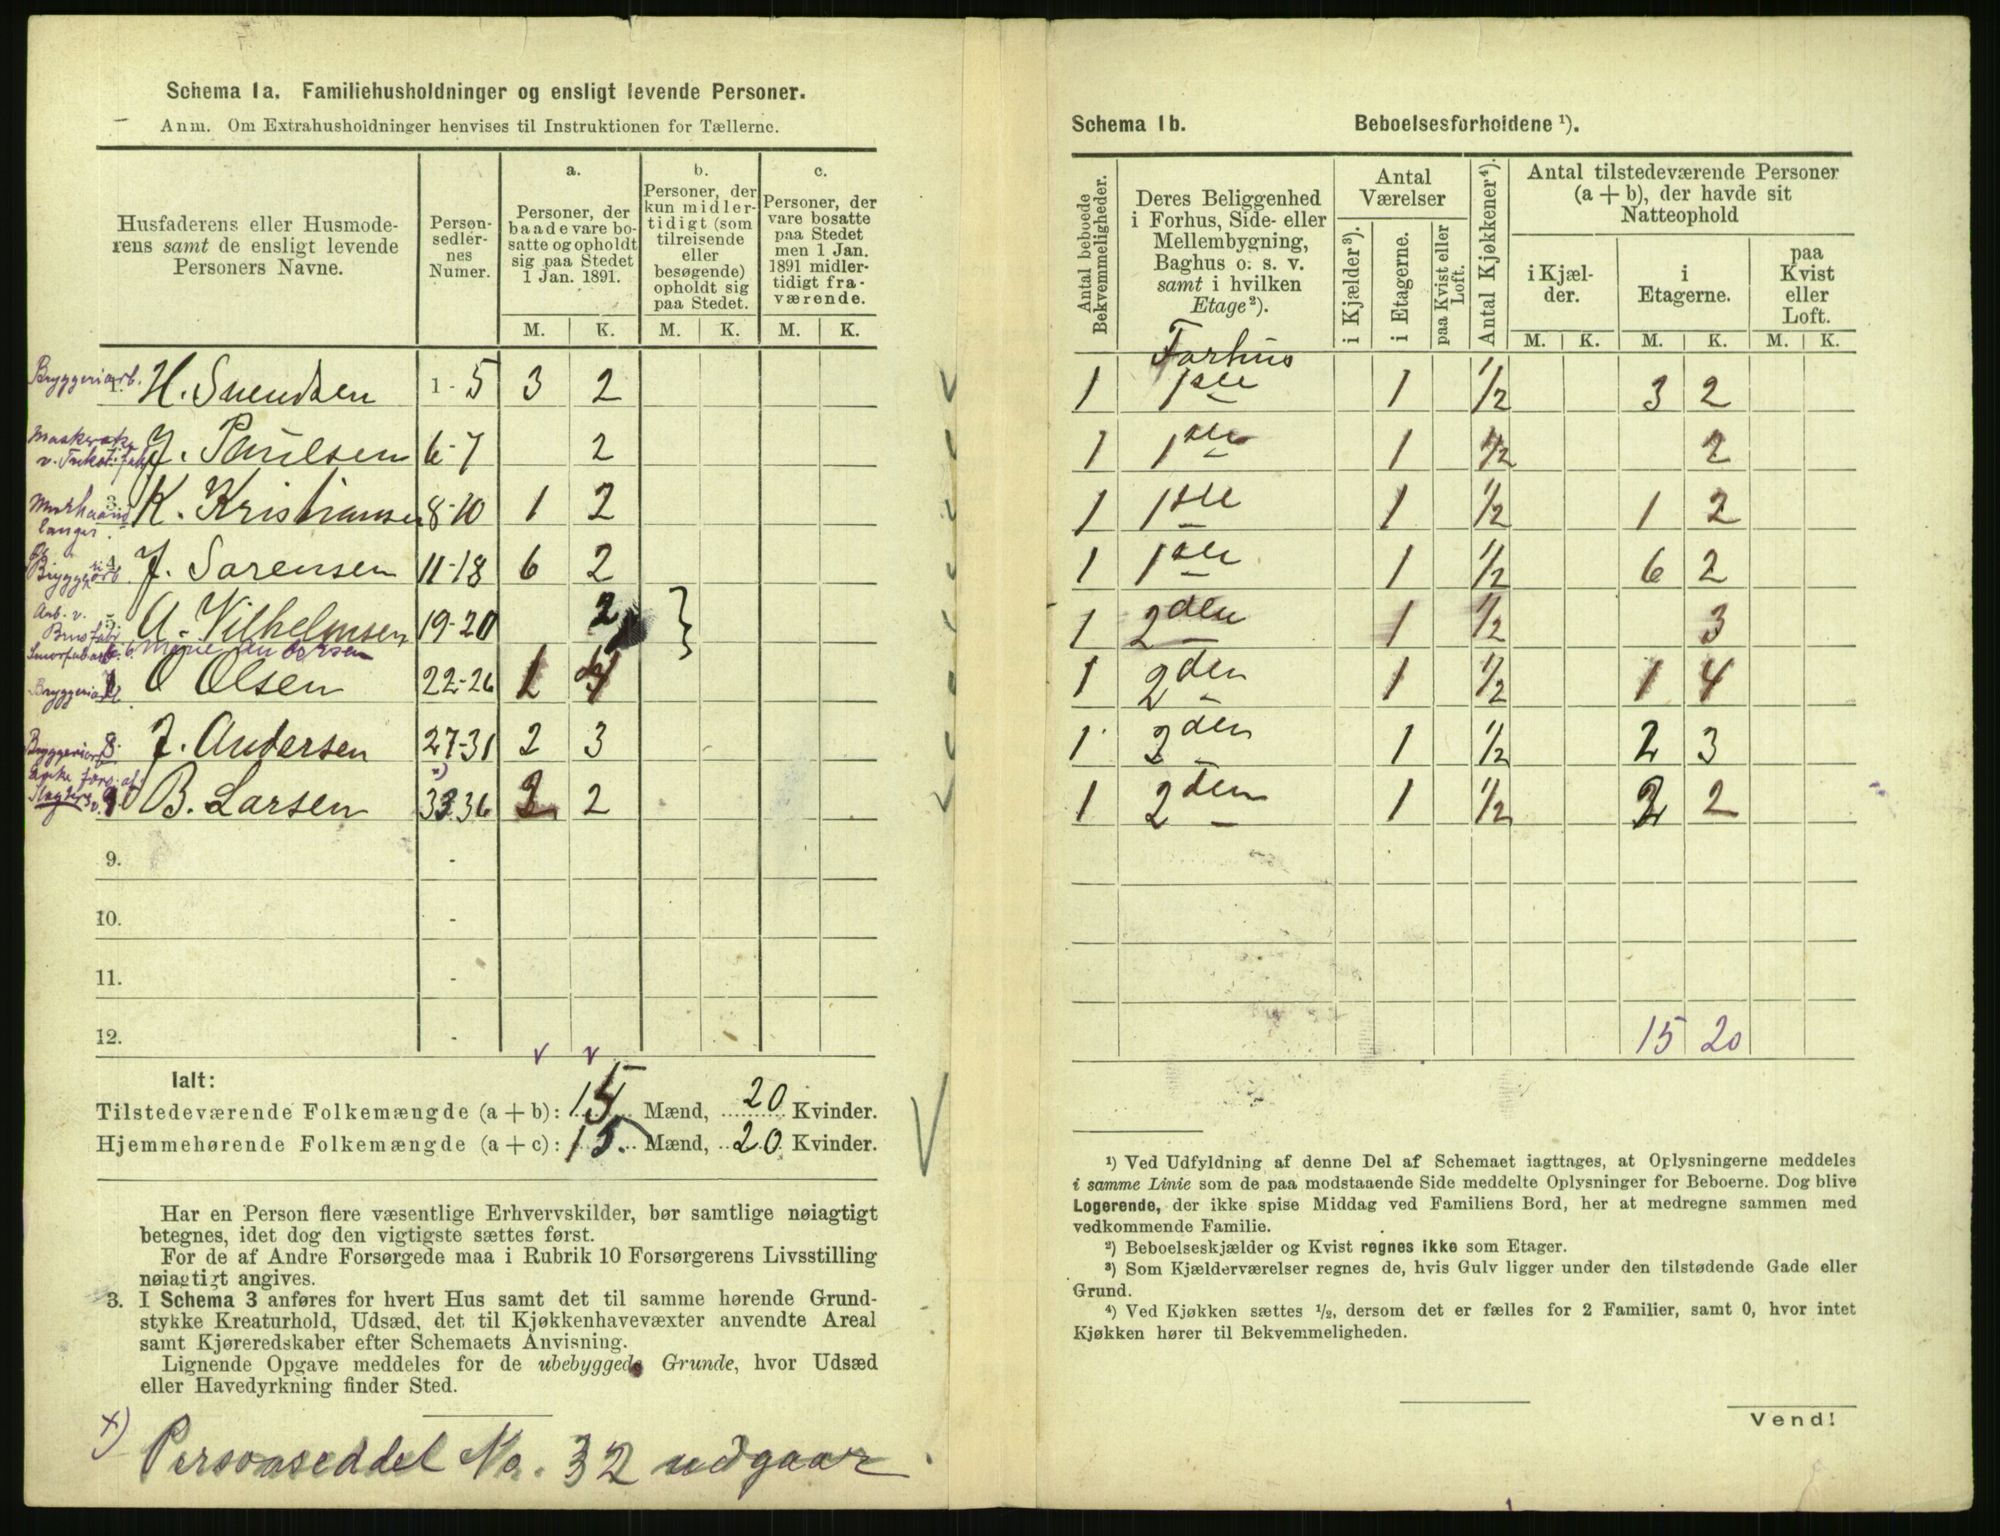 Schema 1a. Familiehusholdninger og ensligt levende Personer.
Anm. Om Extrahusholdninger henvises til Instruktionen for Tællerne.
Husfaderens eller Husmode-
rens samt de ensligt levende
Personers Navne.
Person-
sedler-
nes
Numer.
a.
Personer, der
baade vare bo-
satte og opholdt
sig paa Stedet
1 Jan. 1891.
b.
Personer, der
kun midler-
tidigt (som
tilreisende
eller
besøgende)
opholdt sig
paa Stedet.
c.
Personer, der
vare bosatte
paa Stedet
men 1 Jan.
1891 midler-
tidigt fra-
værende.
M. K. M. K. M. K.
Bryggeriarb. 1. H. Svendsen 1-5 3 2
J. Paulsen 6-7 2
3. K. Kristiansen 8-10 1 2
4. J. Sørensen 11-18 6 2
5. A. Vilhelmsen 19-20 2
6. Marie Andersen
O Olsen 22-26 1 4
Bryggeriarb. 8. J. Andersen 27-31 2 3
B. Larsen 33 36 2 2
9. -
10. -
11. -
12. -
Ialt:
Tilstedeværende Folkemængde (a + b): 15 Mænd, 20 Kvinder.
Hjemmehørende Folkemængde (a + c): 15. Mænd, 20 Kvinder.
Har en Person flere væsentlige Erhvervskilder, bør samtlige nøiagtigt
betegnes, idet dog den vigtigste sættes først.
For de af Andre Forsørgede maa i Rubrik 10 Forsørgerens Livsstilling
nøiagtigt angives.
3. I Schema 3 anføres for hvert Hus samt det til samme hørende Grund-
stykke Kreaturhold, Udsæd, det til Kjøkkenhavevæxter anvendte Areal
samt Kjøreredskaber efter Schemaets Anvisning.
Lignende Opgave meddeles for de ubebyggede Grunde, hvor Udsæd
eller Havedyrkning finder Sted.
x) Personseddel No. 32 udgaar.
Schema 1b. Beboelsesforholdene ¹).
Antal beboede
Bekvemmeligheder.
Deres Beliggenhed
i Forhus, Side- eller
Mellembygning,
Baghus o. s. v.
samt i hvilken
Etage²).
Antal
Værelser
i Kjælder³).
i Etagerne.
paa Kvist eller
Loft.
Antal Kjøkkener⁴).
Antal tilstedeværende Personer
(a + b), der havde sit
Natteophold
i Kjæl-
der.
i
Etagerne.
paa
Kvist
eller
Loft.
M. K. M. K. M. K.
Forhus
1 1ste 1 1/2 3 2
1 1ste 1 1/2 2
1 1ste 1 1/2 1 2
1 1ste 1 1/2 6 2
1 2den 1 1/2 3
1 2den 1 1/2 1 4
1 2den 1 1/2 2 3
1 2den 1 1/2 2 2
15 20
¹) Ved Udfyldning af denne Del af Schemaet iagttages, at Oplysningerne meddeles
i samme Linie som de paa modstaaende Side meddelte Oplysninger for Beboerne. Dog blive
Logerende, der ikke spise Middag ved Familiens Bord, her at medregne sammen med
vedkommende Familie.
²) Beboelseskjælder og Kvist regnes ikke som Etager.
³) Som Kjælderværelser regnes de, hvis Gulv ligger under den tilstødende Gade eller
Grund.
⁴) Ved Kjøkken sættes ½, dersom det er fælles for 2 Familier, samt 0, hvor intet
Kjøkken hører til Bekvemmeligheden.
Vend!